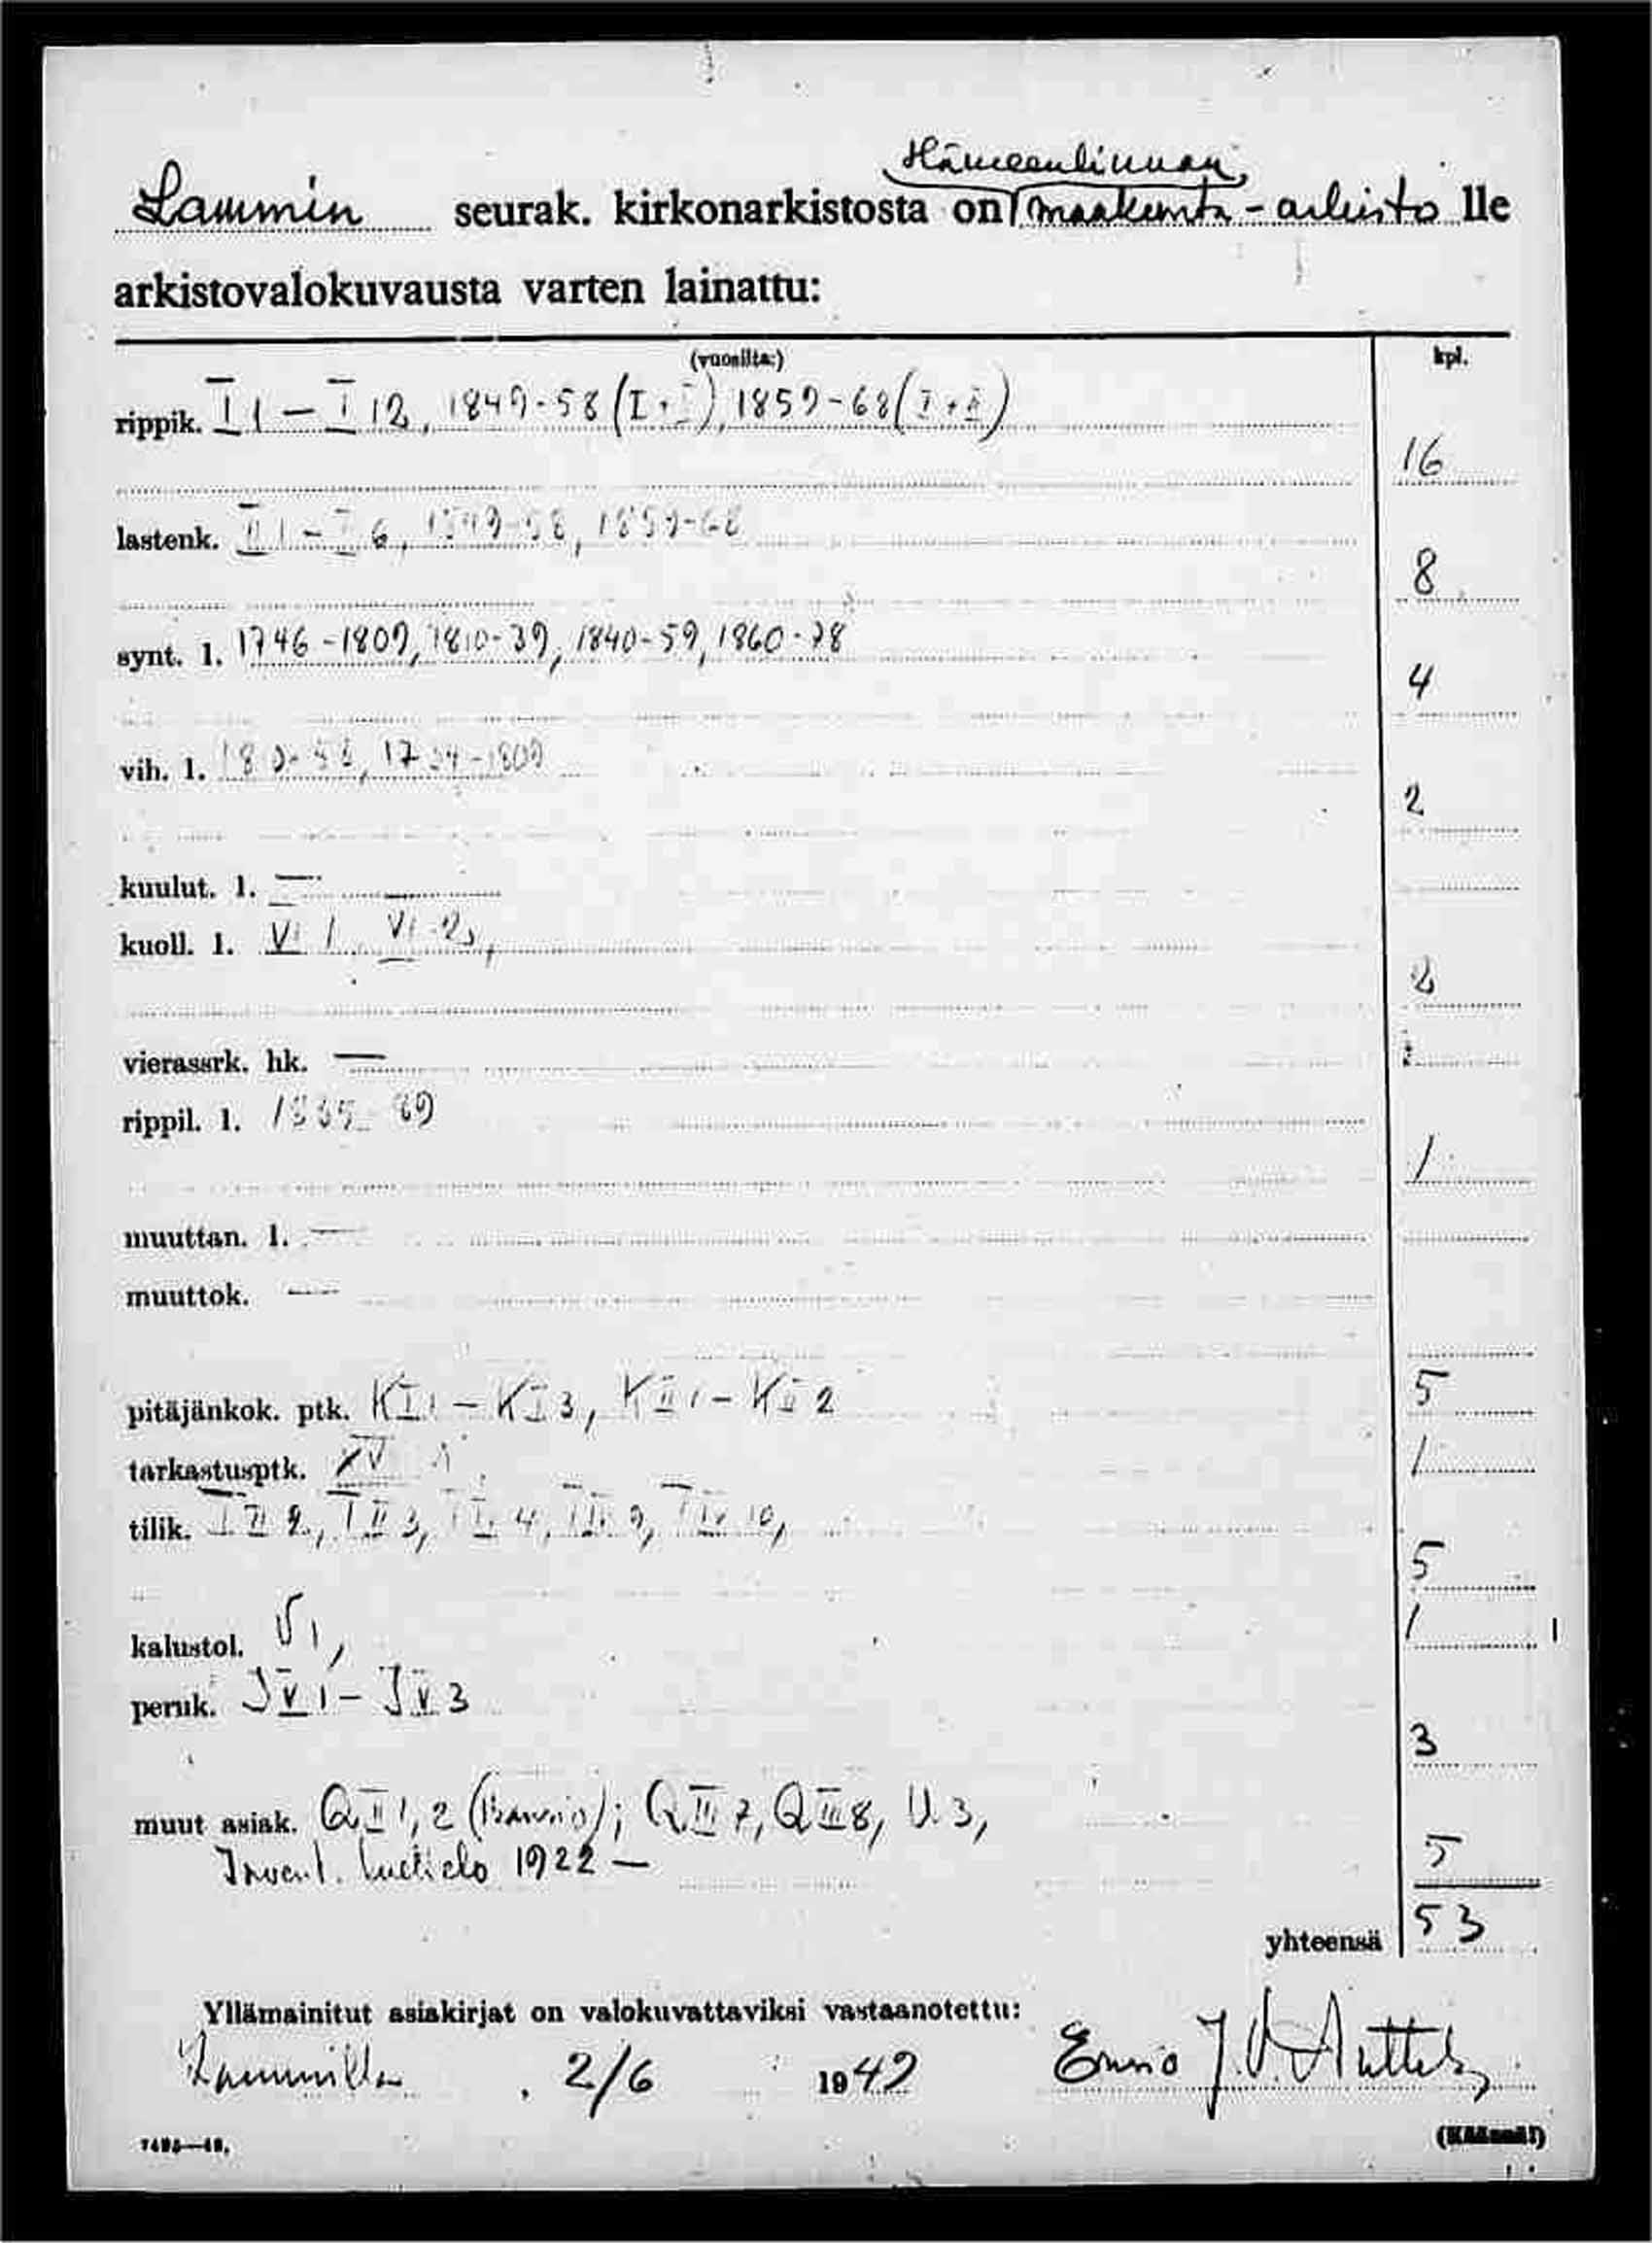 Hämeenlinnan
Lammin seurak. kirkonarkistosta on maakunta-arkisto lle
arkistovalokuvausta varten lainattu:
(vuosilta:) kpl.
rippik. I 1 – I 12, 1849-58 (I+I), 1859-68 (I+II)
16
lastenk. II 1 – I 6, 1849-58, 1859-68
8
synt. l. 1746-1809, 1810-39, 1840-59, 1860-78
4
vih. l. 1809
2
kuulut. l. —
kuoll. l. VI 1 VI 2,
2
vierassrk. hk. —
rippil. l. 89
1
muuttan. l. —
muuttok. —
pitäjänkok. ptk. KI 1 – KI 3, KII 1 – KII 2 5
tarkastusptk. 1
tilik. T II 2, T II 3, 4, 9, 10,
5
kalustol. 1, 1
peruk. J V 1 – J V 3
3
muut asiak. Q II 1, 2 ; Q III 7, Q III 8, U. 3,
Invent. luettelo 1922 — 5
yhteensä 53
Yllämainitut asiakirjat on valokuvattaviksi vastaanotettu:
Lammilla . 2/6 1949 J.V.
(Käännä!)